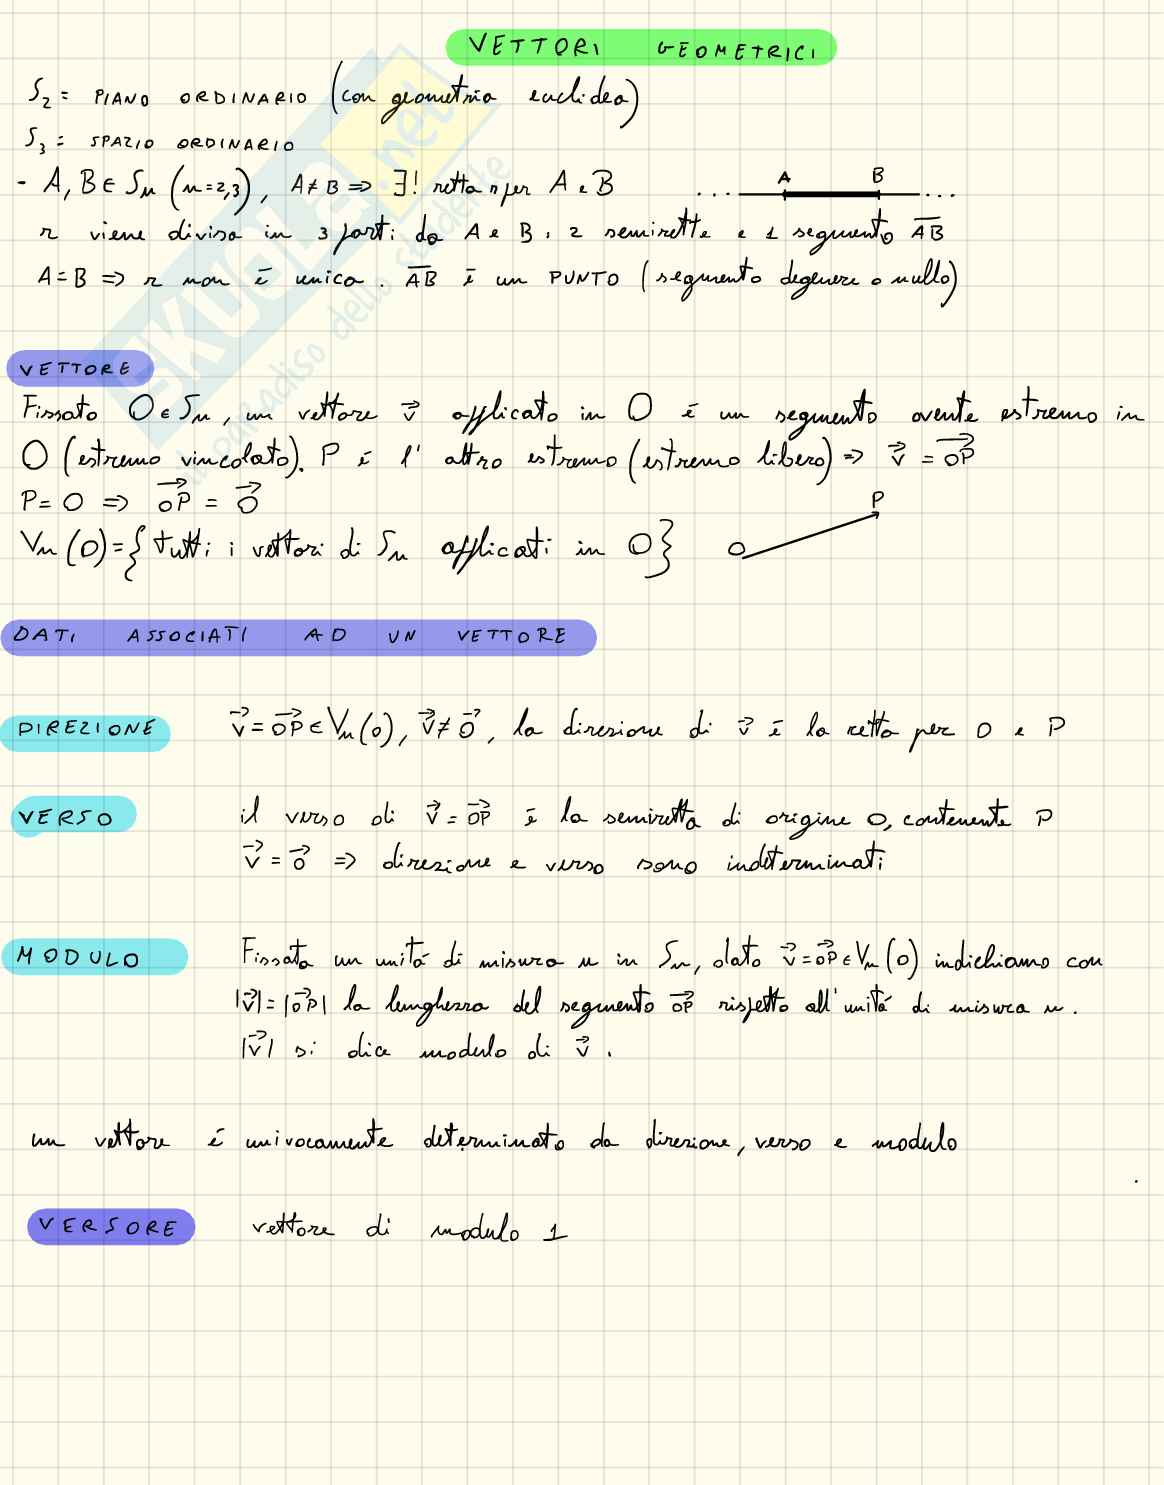 VETTORI GEOMETRICI
S₂ = PIANO ORDINARIO (con geometria euclidea)
S₃ = SPAZIO ORDINARIO
- A, B ∈ Sₙ (n=2,3), A≠B ⇒ ∃! retta r per A e B
... A B ...
r viene divisa in 3 parti da A e B: 2 semirette e 1 segmento \overline{AB}
A=B ⇒ r non è unica. \overline{AB} è un PUNTO (segmento degenere o nullo)
VETTORE
Fissato O ∈ Sₙ, un vettore \vec{v} applicato in O è un segmento avente estremo in
O (estremo vincolato). P è l'altro estremo (estremo libero) ⇒ \vec{v} = \vec{OP}
P = O ⇒ \vec{OP} = \vec{O}
Vₙ(O) = {tutti i vettori di Sₙ applicati in O}
O P
DATI ASSOCIATI AD UN VETTORE
DIREZIONE \vec{v} = \vec{OP} ∈ Vₙ(O), \vec{v} ≠ \vec{O}, la direzione di \vec{v} è la retta per O e P
VERSO il verso di \vec{v} = \vec{OP} è la semiretta di origine O, contenente P
\vec{v} = \vec{O} ⇒ direzione e verso sono indeterminati
MODULO Fissata un unità di misura u in Sₙ, dato \vec{v} = \vec{OP} ∈ Vₙ(O) indichiamo con
|\vec{v}| = |\vec{OP}| la lunghezza del segmento \vec{OP} rispetto all'unità di misura u.
|\vec{v}| si dice modulo di \vec{v}.
un vettore è univocamente determinato da direzione, verso e modulo
VERSORE vettore di modulo 1
SKUOLA.net
il paradiso dello studente